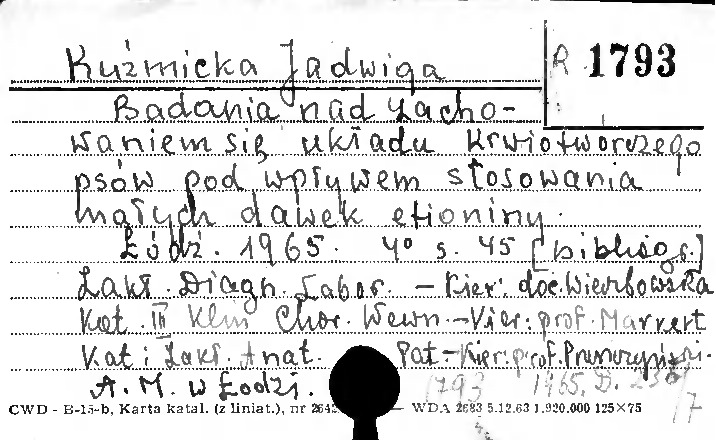 Kuźmicka Jadwiga
R 1793
Badania nad zacho-
waniem się układu krwiotworczego
psów pod wpływem stosowania
małych dawek etioniny.
Łódź. 1965. 4° s. 45 [bibliogr.]
Zakł. Diagn. Labor. – Kier. doc. Wierzbowska
Kat. III Klin Chor. Wewn. – Kier: prof. Markert
Kat i Zakł. Anat. Pat – Kier: prof.
A. M. w Łodzi. 1793 1965. D.
CWD - B-15-b, Karta katal. (z liniat.), nr — WDA 2683 5.12.63 1.920.000 125×75